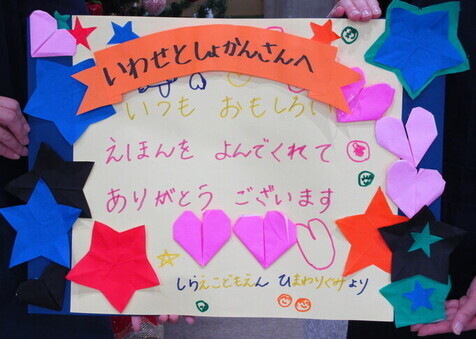 いわせとしょかんさんへ
いつも おもしろい
えほんを よんでくれて
ありがとう ございます
しらえこどもえん ひまわりぐみより